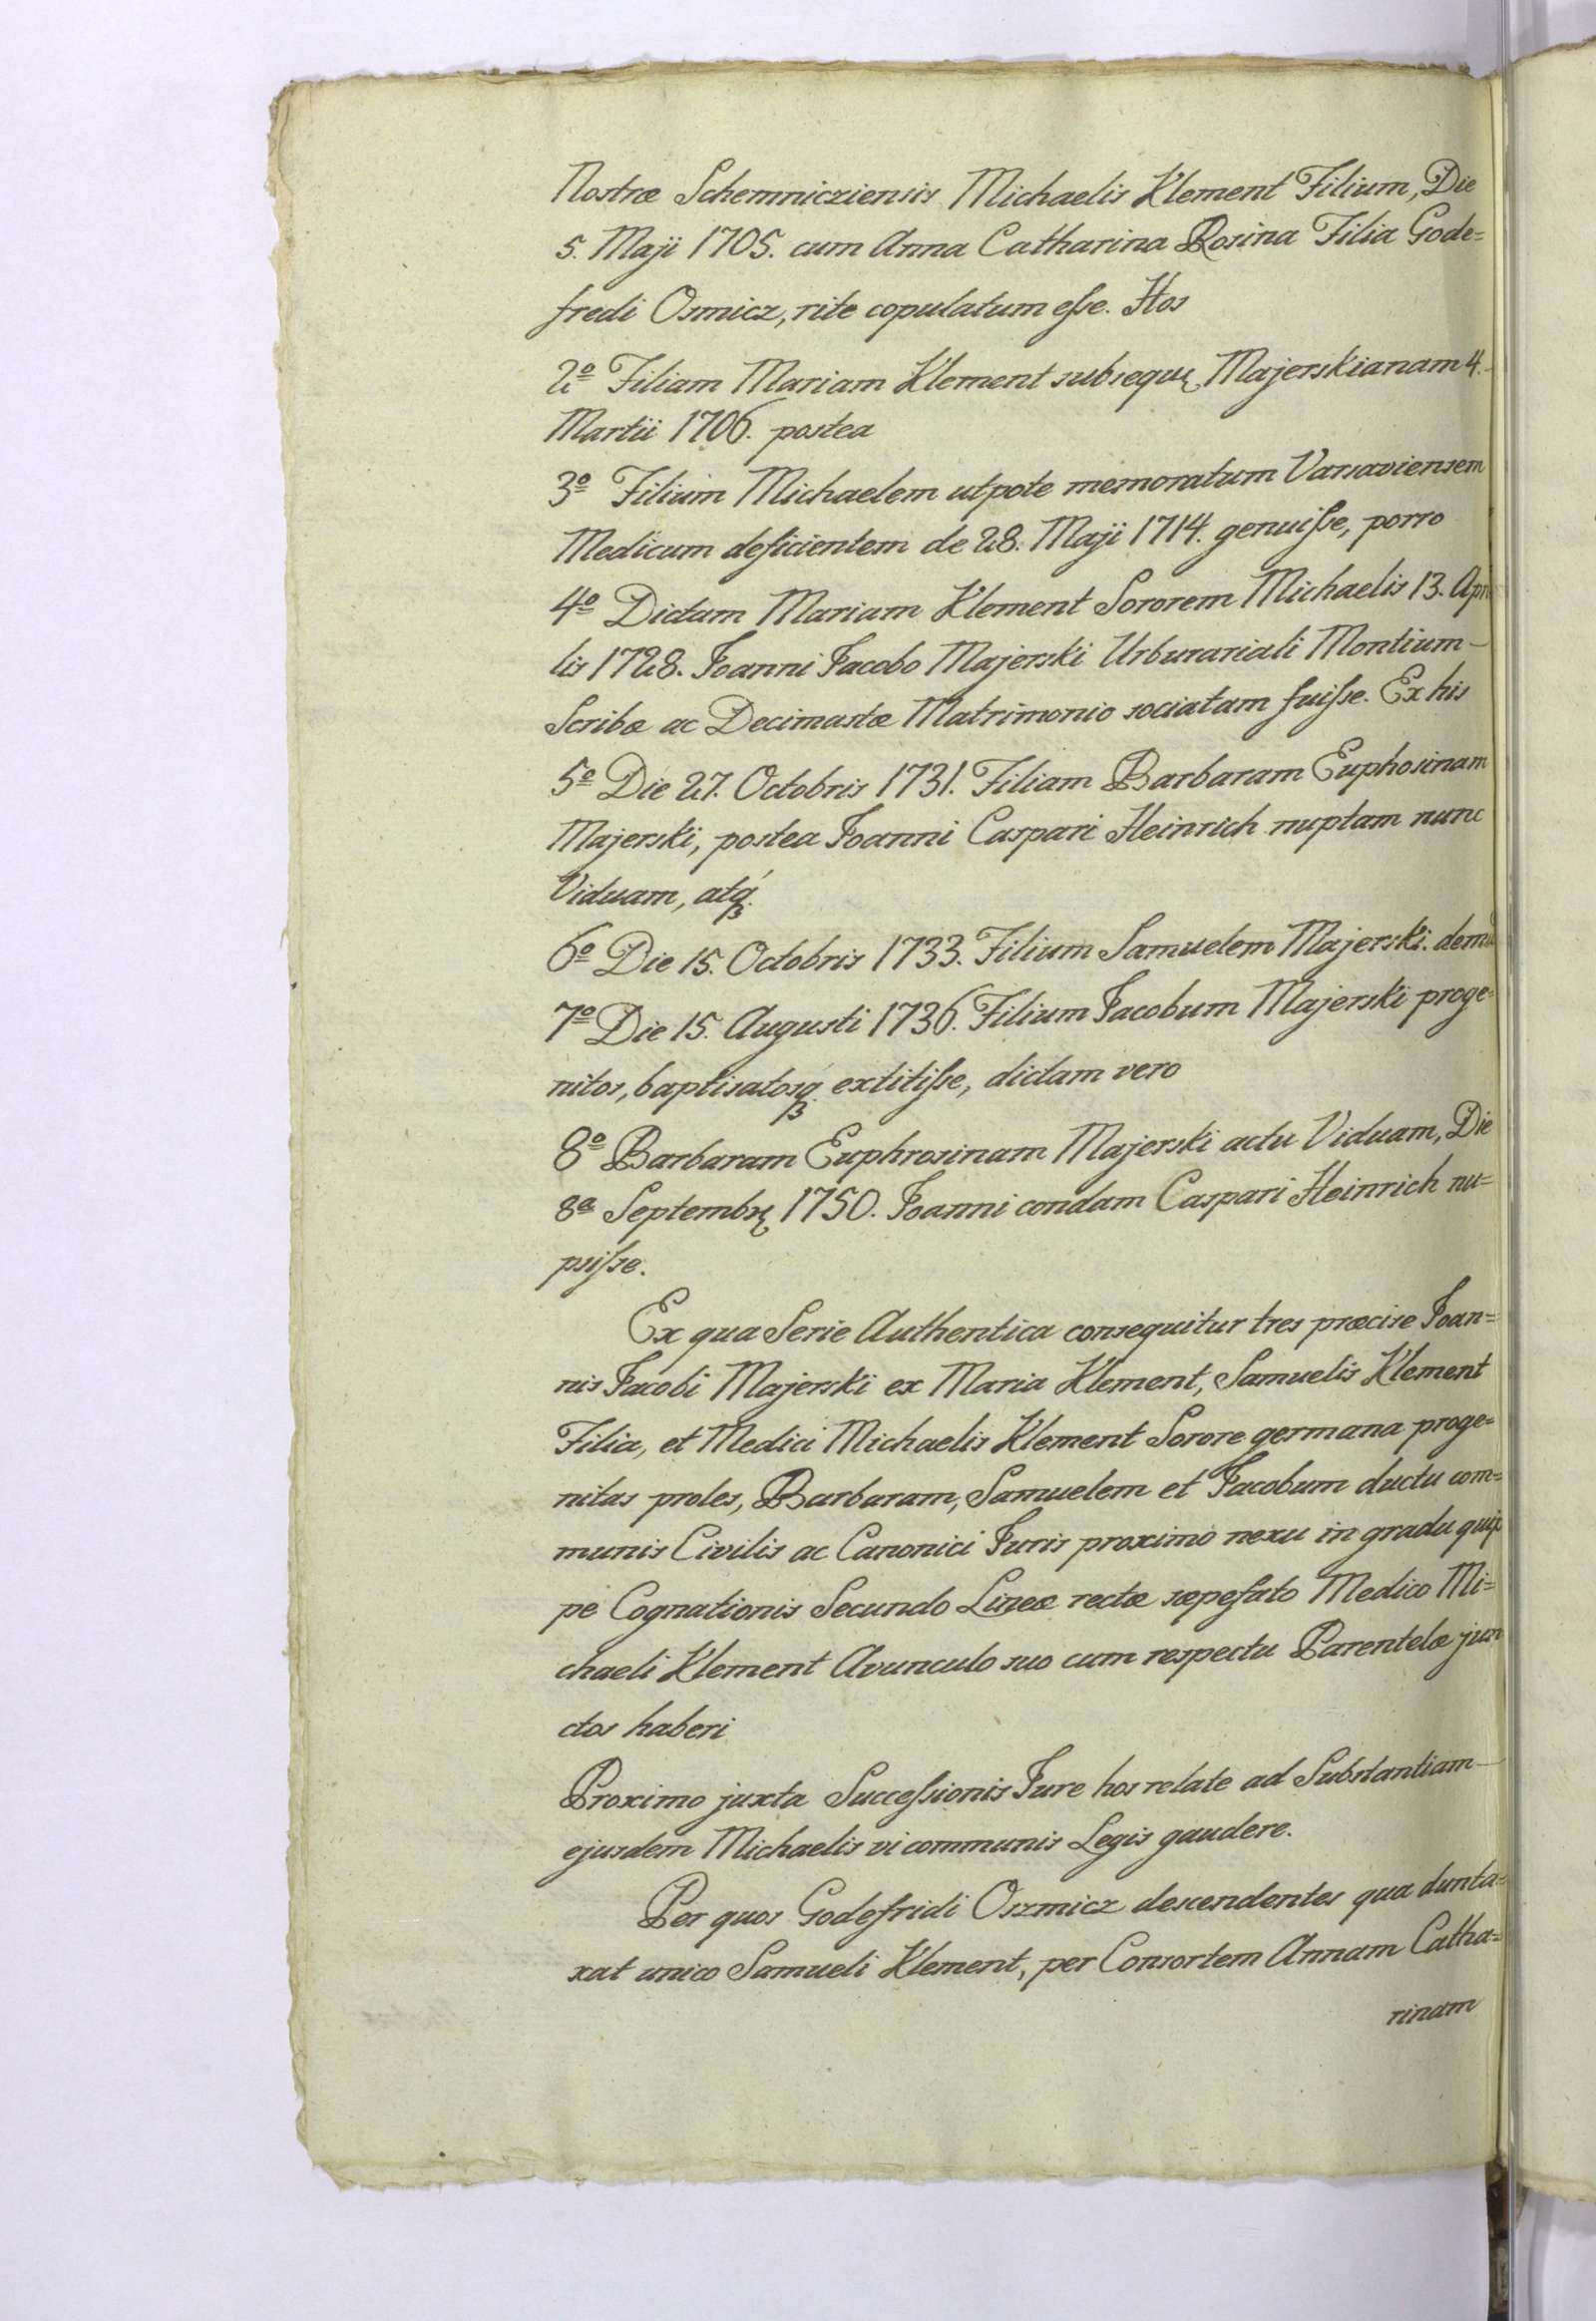 Nostræ Schemnicziensis Michaelis Klement Filium, Die
5. Maji 1705. cum Anna Catharina Rosina Filia Gode=
fredi Osmicz, rite copulatum eſse. Hos
2º Filiam Mariam Klement subsequ. Majerskianam 4.
Martii 1706. postea
3º Filium Michaelem utpote memoratum Varsaviensem
Medicum deficientem de 28. Maji 1714. genuiſse, porro
4º Dictam Mariam Klement Sororem Michaelis 13. Apri
lis 1728. Joanni Jacobo Majerski Urburariali Montium–
Scribæ ac Decimastæ Matrimonio sociatam fuiſse. Ex his
5º Die 27. Octobris 1731. Filiam Barbaram Euphosinam
Majerski, postea Joanni Caspari Heinrich nuptam nunc
Viduam, atq́ꝫ
6º Die 15. Octobris 1733. Filium Samuelem Majerski. demũ
7º Die 15. Augusti 1736. Filium Jacobum Majerski proge=
nitos, baptisatosqꝫ extitiſse, dictam vero
8º Barbaram Euphrosinam Majerski actu Viduam, Die
8ª Septembr. 1750. Joanni condam Caspari Heinrich nu=
psiſse.
Ex qua Serie Authentica consequitur tres præcise Joan=
nis Jacobi Majerski ex Maria Klement, Samuelis Klement
Filia, et Medici Michaelis Klement Sorore germana proge=
nitas proles, Barbaram, Samuelem et Jacobum ductu com=
munis Civilis ac Canonici Juris proximo nexu in gradu quip
pe Cognationis Secundo Lineæ rectæ sæpefato Medico Mi=
chaeli Klement Avunculo suo cum respectu Parentelæ jun
ctos haberi
Proximo juxta Succeſsionis Jure hos relate ad Substantiam–
ejusdem Michaelis vi communis Legis gaudere.
Per quos Godefridi Oszmicz descendentes qua dunta=
xat unico Samueli Klement, per Consortem Annam Catha=
rinam